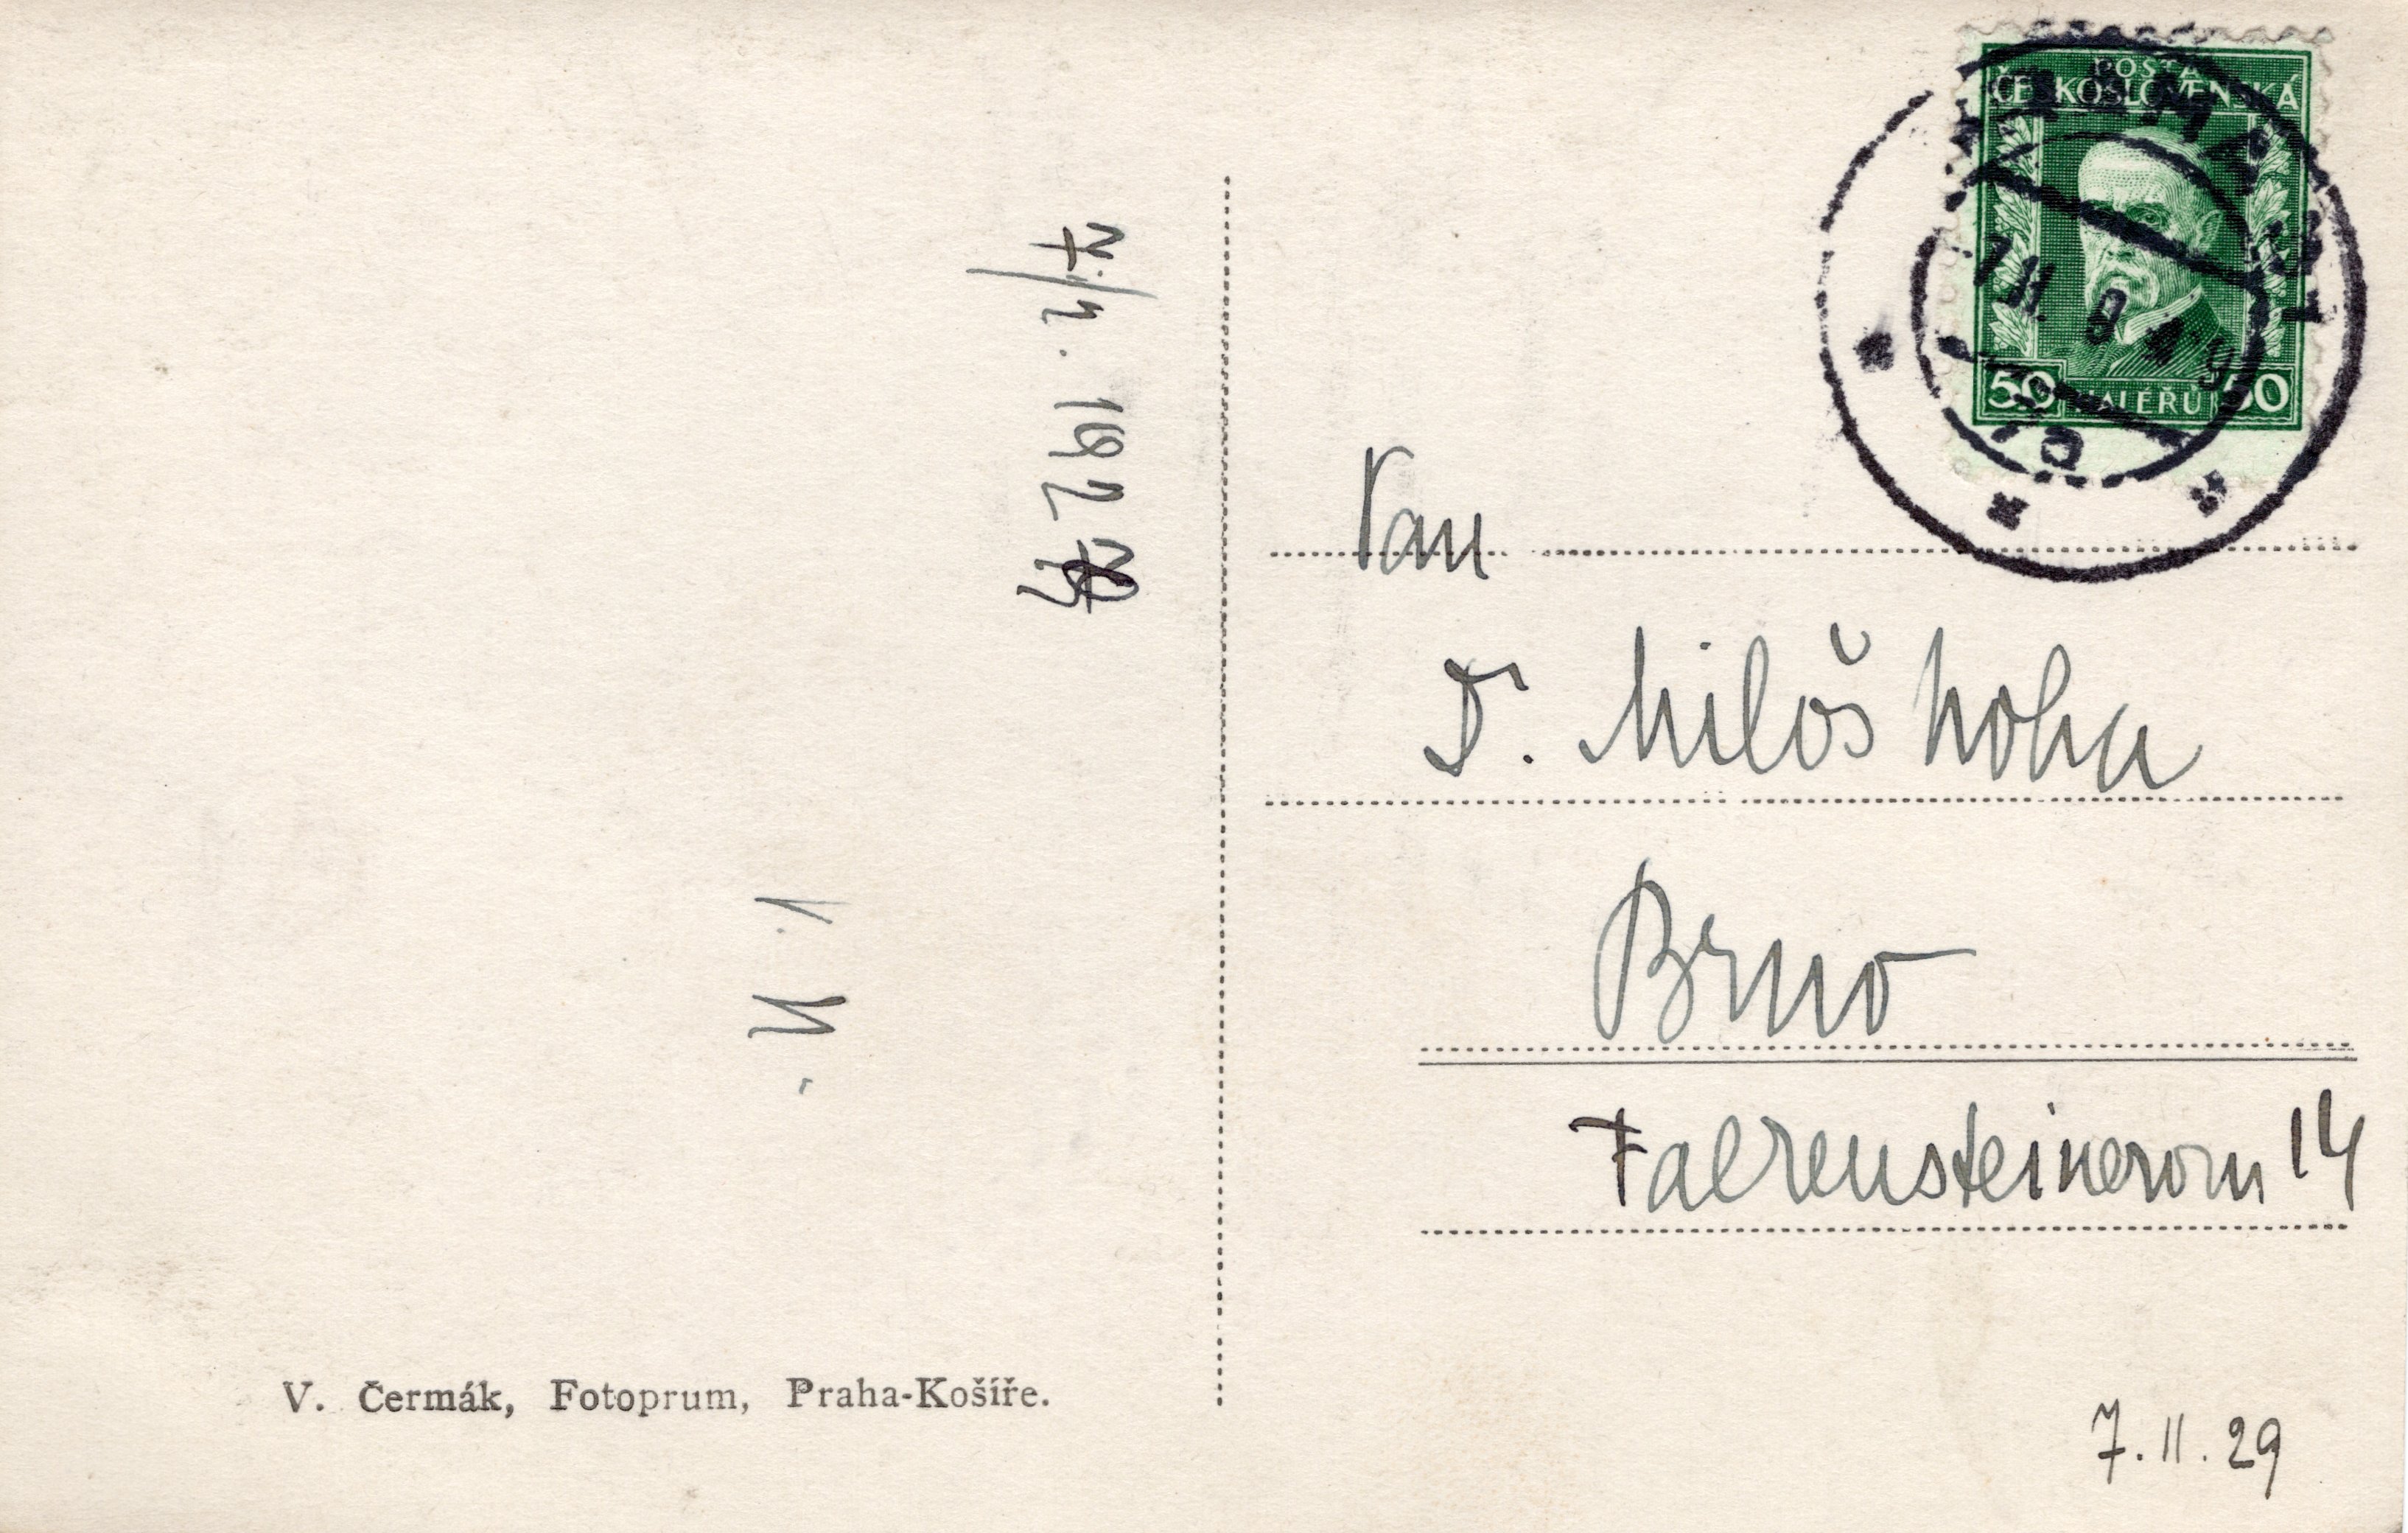 7/2. 1929
V. N.
V. Čermák, Fotoprum, Praha-Košíře.
POSTA
ČESKOSLOVENSKÁ
50 HALÉŘŮ 50
Pan
Dr. Miloš Noha
Brno
Falrensteinerom 14
7. II. 29